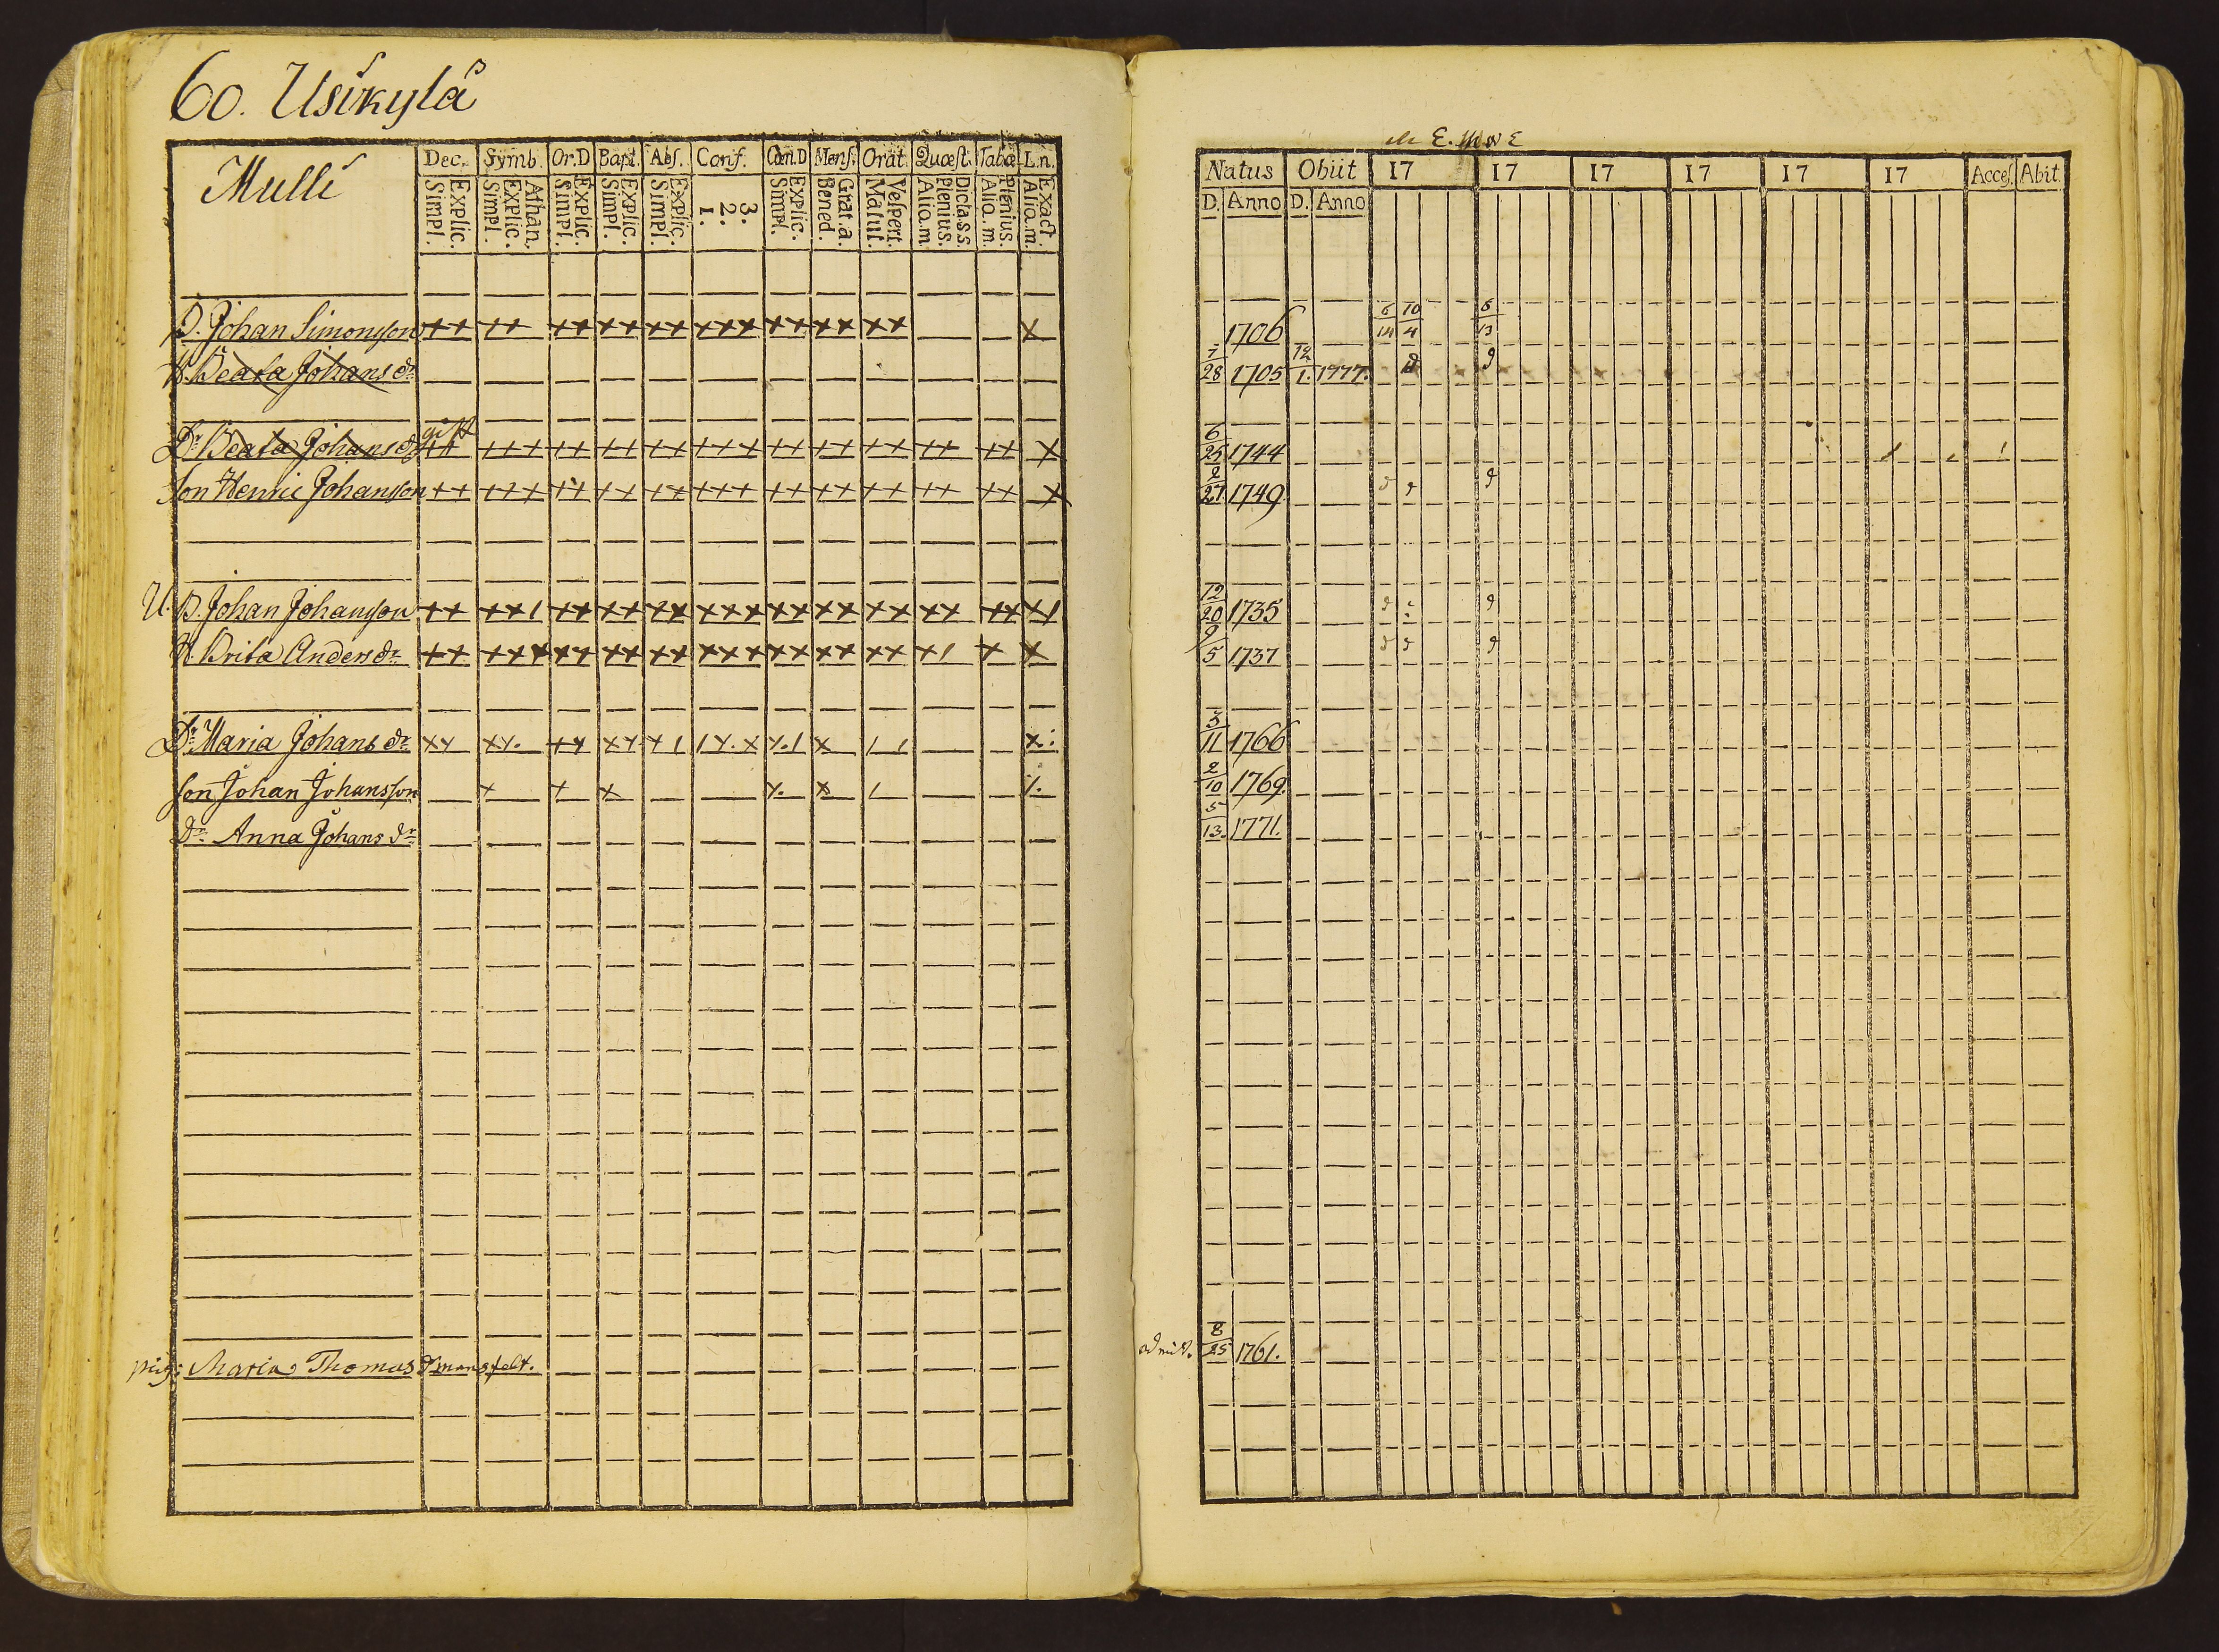 60. Usikylä
Mulli
Dec. Symb. Or.D Bapt. Abſ. Conf. Cœn.D Menſ. Orat. Quæſt. Tabæ L.n.
Simpl. Explic. Simpl. Explic. Athan. Simpl. Explic. Simpl. Explic. Simpl. Explic. 1. 2. 3. Simpl. Explic. Bened. Grat.a. Matut. Veſpert. Alio.m. Plenius. Dclass. Alio.m. Plenius. Alio.m. Exact.
B. Johan Simonsson ++ ++ ++ ++ ++ +++ ++ ++ ++ x
H. Beata Johans dr
Dr Beata Johans dr gift ++ +++ ++ ++ ++ +++ ++ ++ ++ ++ ++ x
Son Henric Johansson ++ +++ ++ ++ ++ +++ ++ ++ ++ ++ ++ x
U. B. Johan Johansson ++ ++1 ++ ++ ++ +++ ++ ++ ++ ++ ++ +1
H. Brita Anders dr ++ +++ ++ ++ ++ +++ ++ ++ ++ +1 + x
Dr Maria Johans dr
Son Johan Johansson
Dr Anna Johans dr
pig: Maria Thomas dr
Natus Obiit 17 17 17 17 17 17 Acceſ. Abit
D. Anno D. Anno
1706 6/14 10/4 6/13
7/28 1705 12/1. 1777.
6/25 1744
2/27 1749
12/20 1735
9/5 1737
3/11 1766
2/10 1769.
5/13. 1771.
8/25 1761.